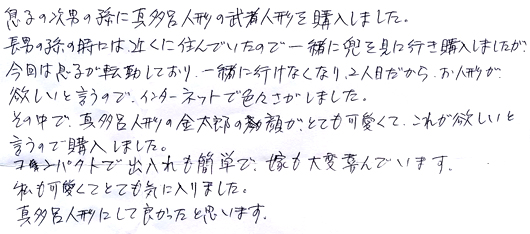 息子の次男の孫に真多呂人形の武者人形を購入しました。
長男の孫の時には、近くに住んでいたので一緒に兜を見に行き購入しましたが、
今回は息子が転勤しており、一緒に行けなくなり、2人目だから、お人形が
欲しいと言うので、インターネットで色々さがしました。
その中で、真多呂人形の金太郎の顔が、とても可愛くて、これが欲しいと
言うので購入しました。
コンパクトで出入れも簡単で、嫁も大変喜んでいます。
私も可愛くてとても気に入りました。
真多呂人形にして良かったと思います。